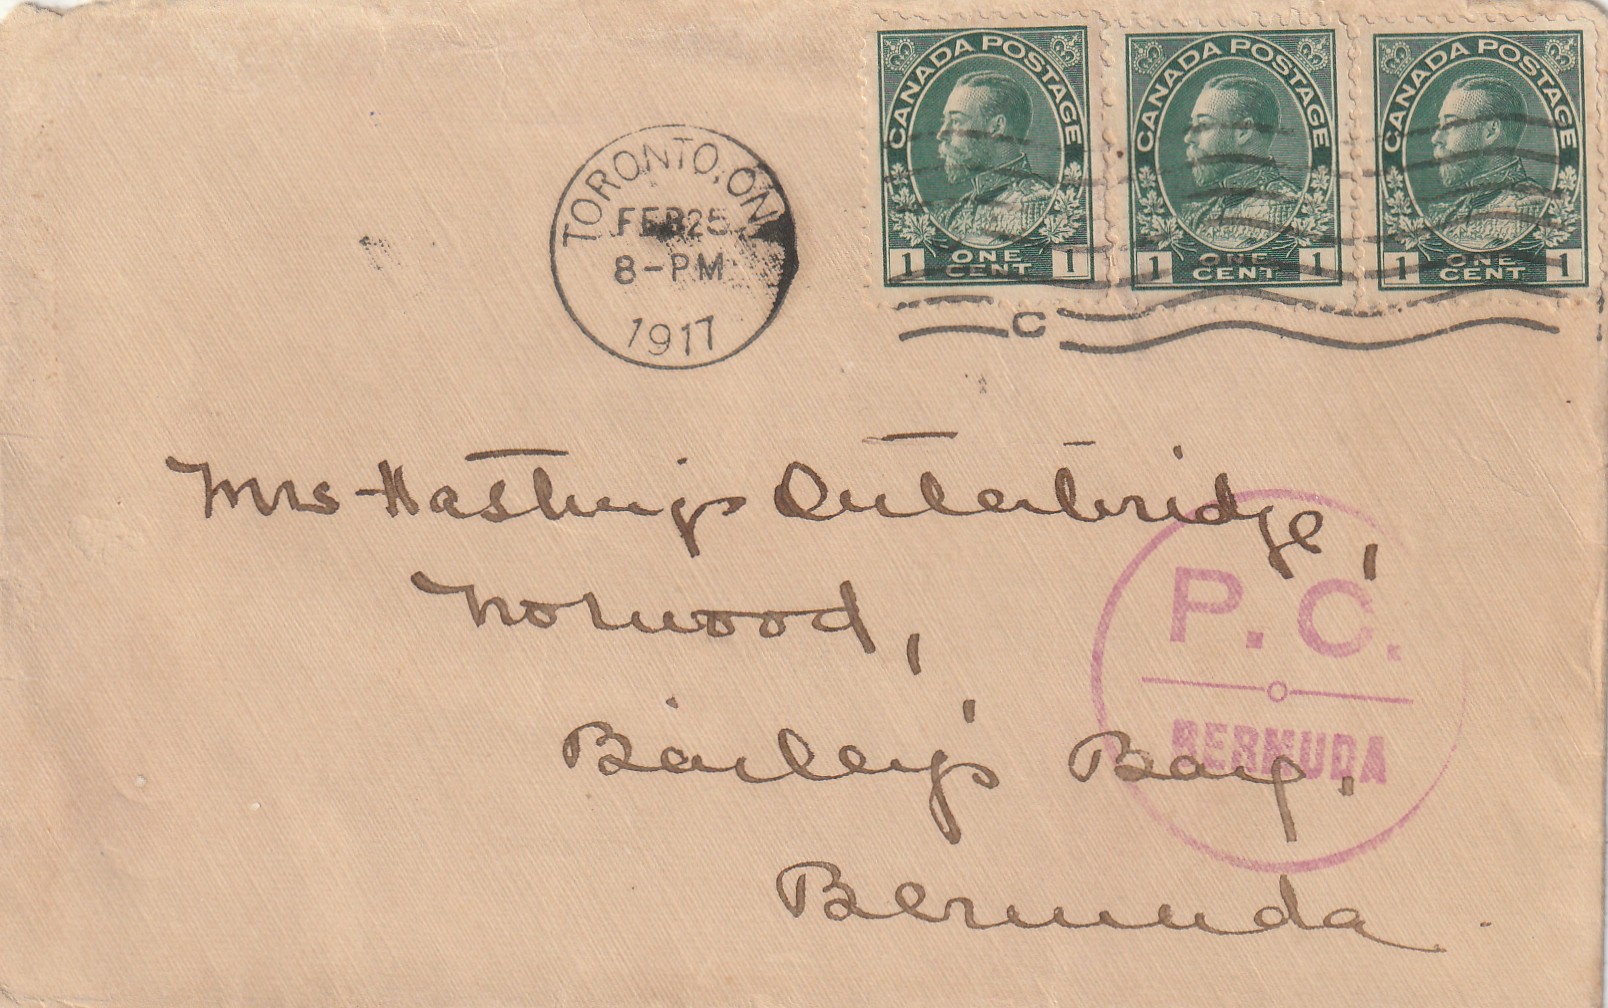 CANADA POSTAGE CANADA POSTAGE CANADA POSTAGE
1 ONE CENT 1 1 ONE CENT 1 1 ONE CENT 1
TORONTO, ON
FEB 25
8-PM
1917
C
Mrs Hastings Outerbridge,
Norwood,
Bailey's Bay.
Bermuda.
P. C.
BERMUDA